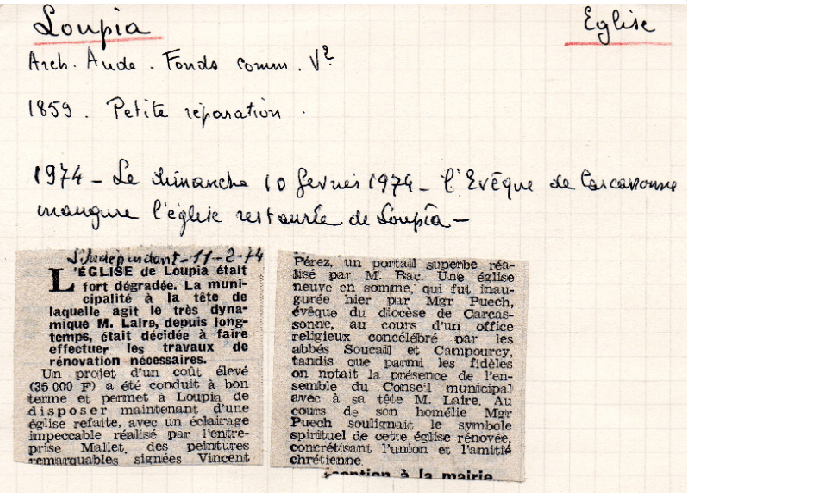 Loupia
Eglise
Arch. Aude. Fonds comm. V²
1859. Petite réparation.
1974 - Le dimanche 10 fevrier 1974 - l'Evêque de Carcassonne
inaugure l'église restaurée de Loupia -
L'Indépendant - 11-2-74
L'ÉGLISE de Loupia était
fort dégradée. La muni-
cipalité à la tête de
laquelle agit le très dyna-
mique M. Laire, depuis long-
temps, était décidée à faire
effectuer les travaux de
rénovation nécessaires.
Un projet d'un coût élevé
(35 000 F) a été conduit à bon
terme et permet à Loupia de
disposer maintenant d'une
église refaite, avec un éclairage
impeccable réalisé par l'entre-
prise Mallet, des peintures
remarquables signées Vincent
Pérez, un portail superbe réa-
lisé par M. Rac. Une église
neuve en somme, qui fut inau-
gurée hier par Mgr Puech,
évêque du diocèse de Carcas-
sonne, au cours d'un office
religieux concélébré par les
abbés Soucail et Campourcy,
tandis que parmi les fidèles
on notait la présence de l'en-
semble du Conseil municipal
avec à sa tête M. Laire. Au
cours de son homélie Mgr
Puech soulignait le symbole
spirituel de cette église rénovée,
concrétisant l'union et l'amitié
chrétienne.
à la mairie